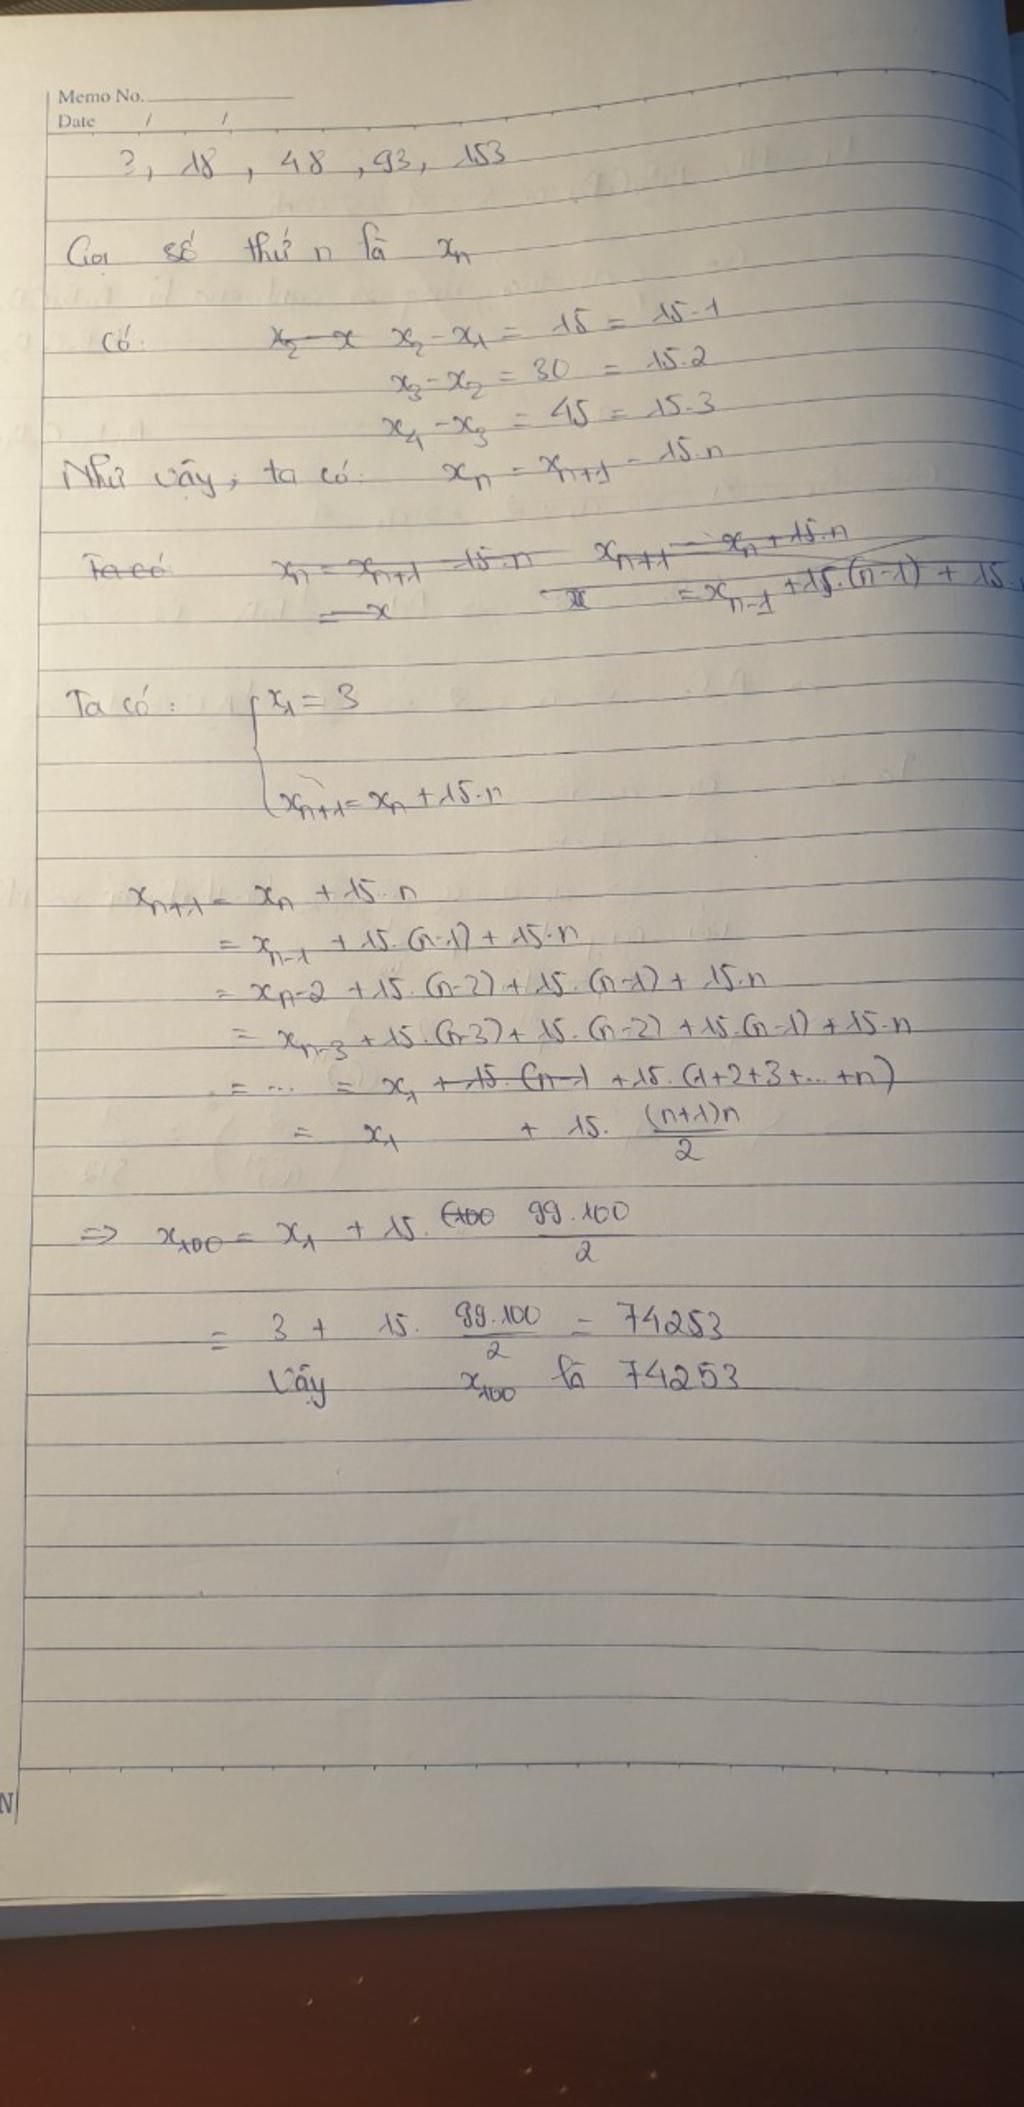 Memo No.
Date / /
3, 18, 48, 93, 153
Gọi số thứ n là xₙ
Có: x₂ - x x₂ - x₁ = 15 = 15.1
x₃ - x₂ = 30 = 15.2
x₄ - x₃ = 45 = 15.3
Như vậy, ta có: xₙ = xₙ₊₁ - 15.n
Ta có xₙ = xₙ₊₁ - 15.n xₙ₊₁ = xₙ + 15.n
= x = xₙ₋₁ + 15.(n-1) + 15.
Ta có: { x₁ = 3
xₙ₊₁ = xₙ + 15.n
xₙ₊₁ = xₙ + 15.n
= xₙ₋₁ + 15.(n-1) + 15.n
= xₙ₋₂ + 15.(n-2) + 15.(n-1) + 15.n
= xₙ₋₃ + 15.(n-3) + 15.(n-2) + 15.(n-1) + 15.n
= ... = x₁ + 15.(n-1 + 15.(1+2+3+...+n)
= x₁ + 15. (n+1)n/2
=> x₁₀₀ = x₁ + 15. (100 99.100/2
= 3 + 15. 99.100/2 = 74253
Vậy x₁₀₀ là 74253
N